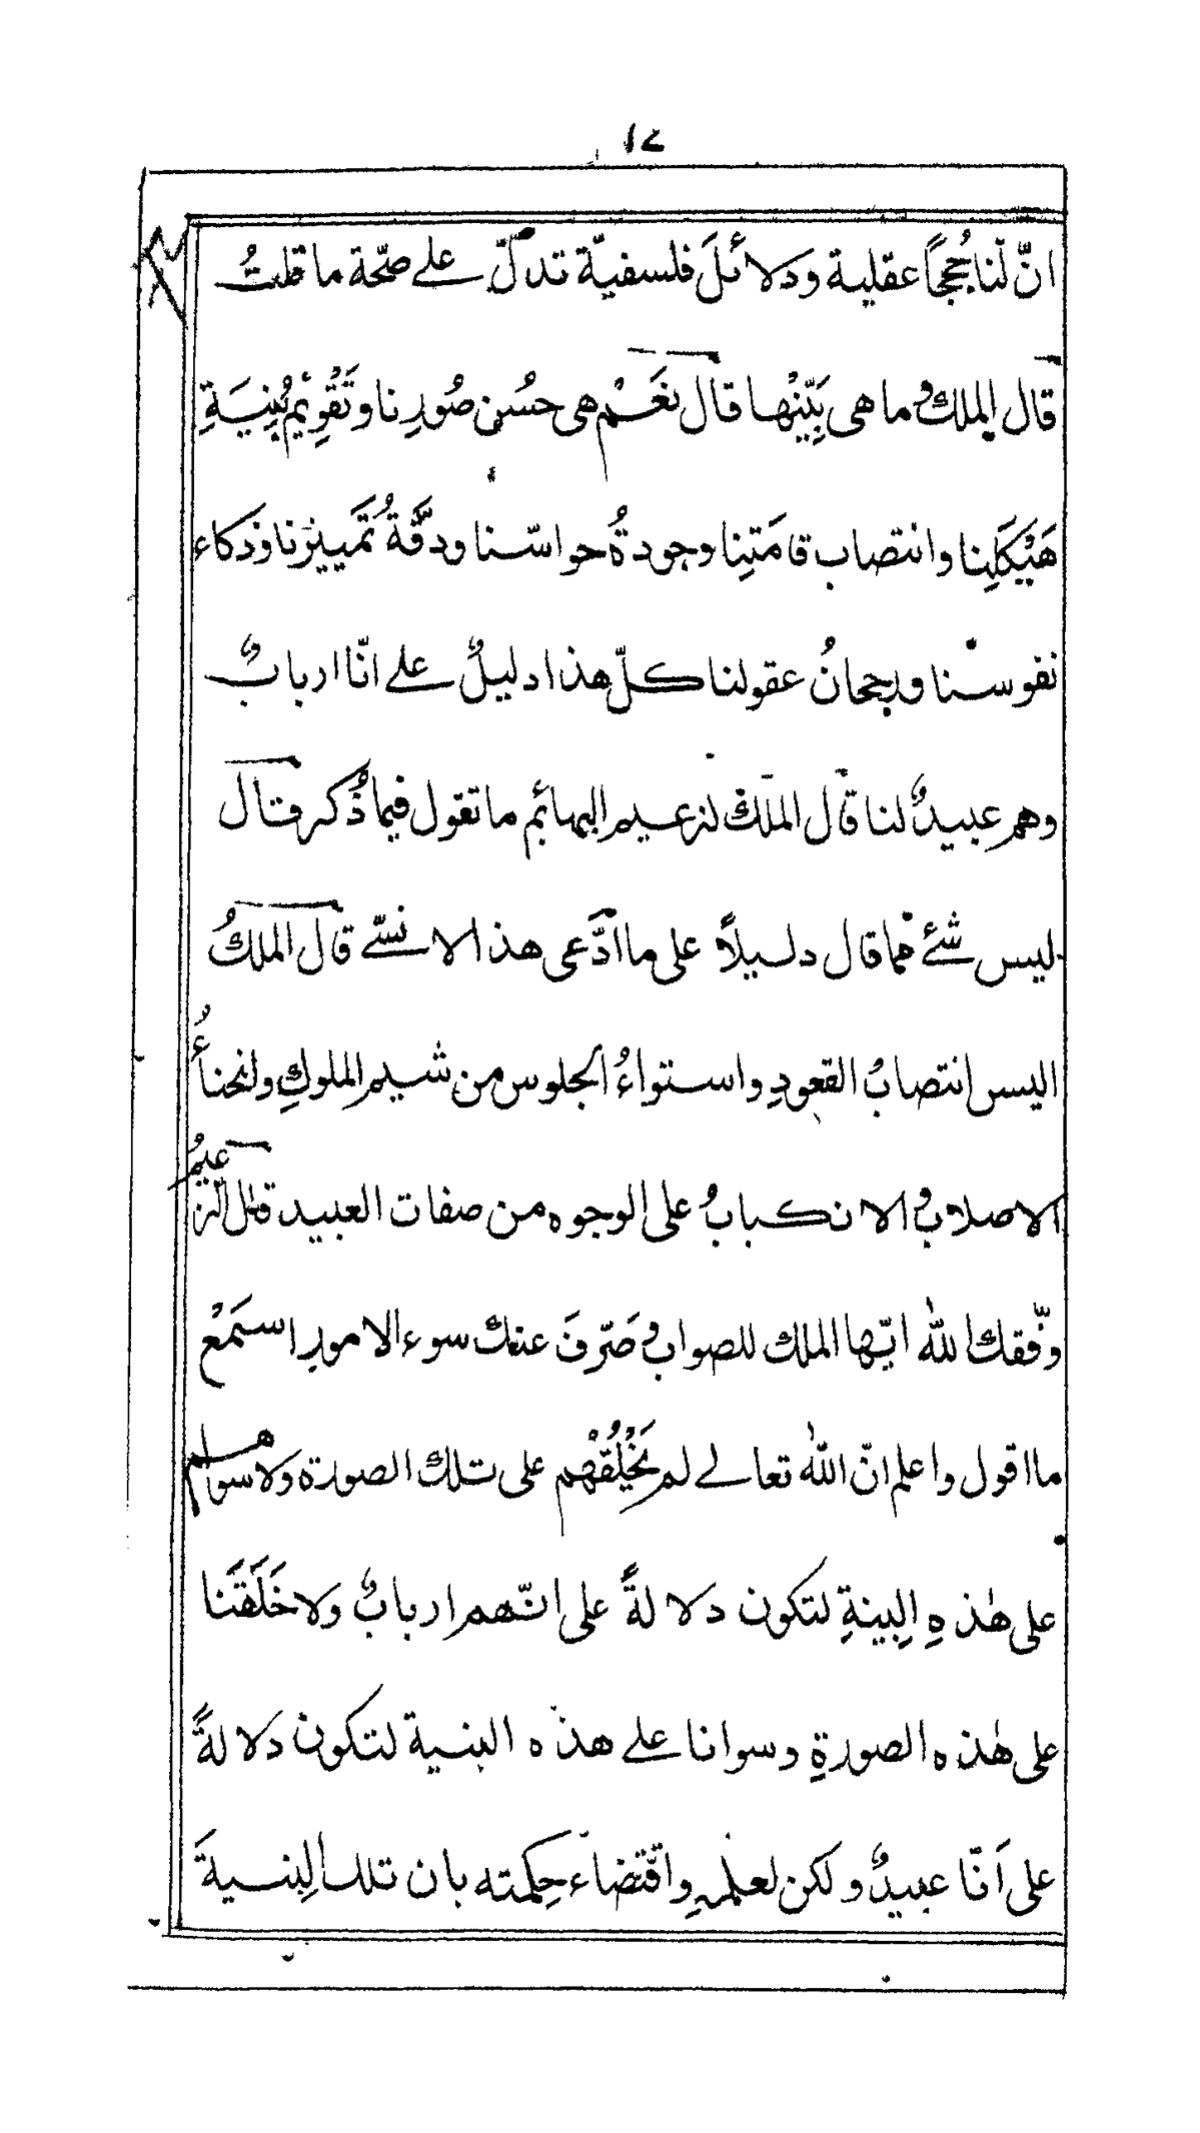 ١٤
انّ لنا حُججًا عقلية ودلائلَ فلسفيّة تدلّ علے صحّة ما قلتُ
قال الملكُ وما هی بَيِّنْها قال نَعَمْ هی حُسْن صُورِنا وتَقْوِيْمُ بُنِيَةِ
هَيْكَلِنا وانتصاب قامَتِنا وجودةُ حواسّنا ودقّةُ تَمييزنا وذكاء
نفوسنا ورجحانُ عقولنا كلّ هذا دليلٌ علے انّا اربابٌ
وهم عبيدٌ لنا قال الملك لزعيم البهائم ما تقول فيما ذُكر فقال
ليس شئے مما قال دليلاً علی ما ادّعی هذا الانسّے قال الملكُ
اليس انتصابُ القعودِ واستواءُ الجلوس من شيم الملوكِ وانحناءُ
الاصلابِ والانكبابُ علی الوجوه من صفات العبيد قال الزعيمُ
وفّقك اللّٰه ايّها الملك للصواب وصَرّفَ عنك سوء الامور استَمِعْ
ما اقول واعلم انّ اللّٰه تعالے لم يَخْلُقْهُم علی تلك الصورة ولا سواهم
علی هٰذهِ البِينةِ لتكون دلالةً علی انّهم اربابٌ ولا خَلَقَنا
علی هٰذه الصورةِ وسوانا علے هذه البنية لتكون دلالةً
علی اَنّا عبيدٌ ولكن لعلمهِ واقتضاء حِكمته بان تلك البِنيةَ